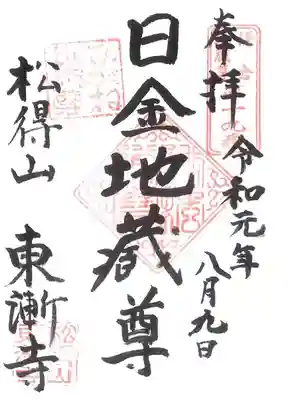 奉拝
令和元年
八月九日
日金地蔵尊
松得山
東漸寺